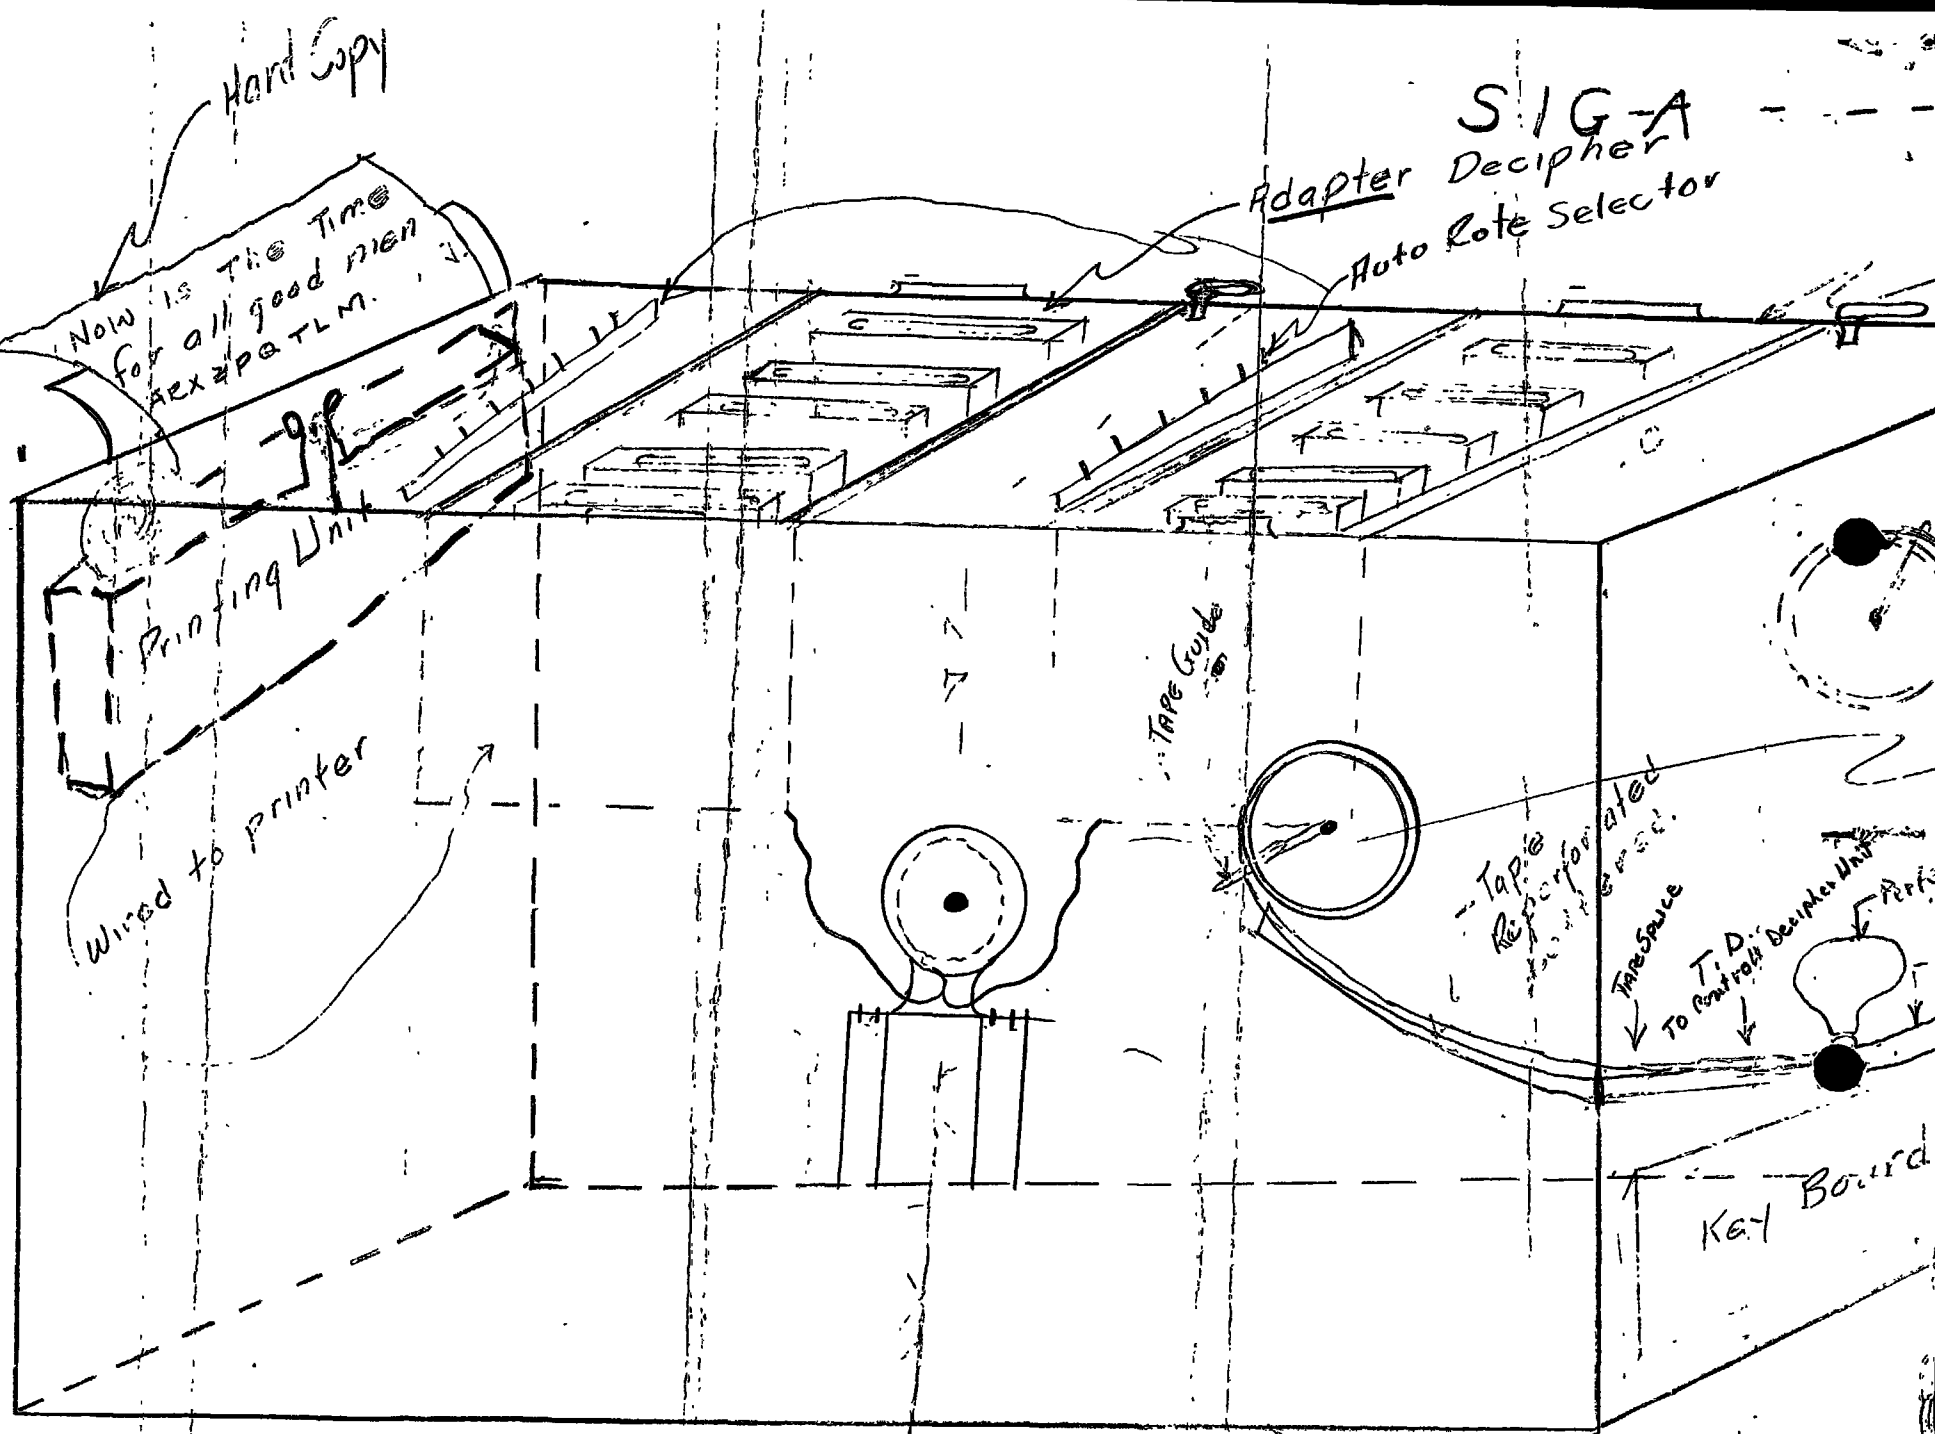 Hard Copy
SIG-A
Adapter Decipher
Auto Rote Selector
Now is The Time
for all good men
Printing Unit
Wired to printer
TAPE Guide
Tape
Reperforated
TAPE SPLICE
T.D.
To Controll Decipher Unit
Key Board